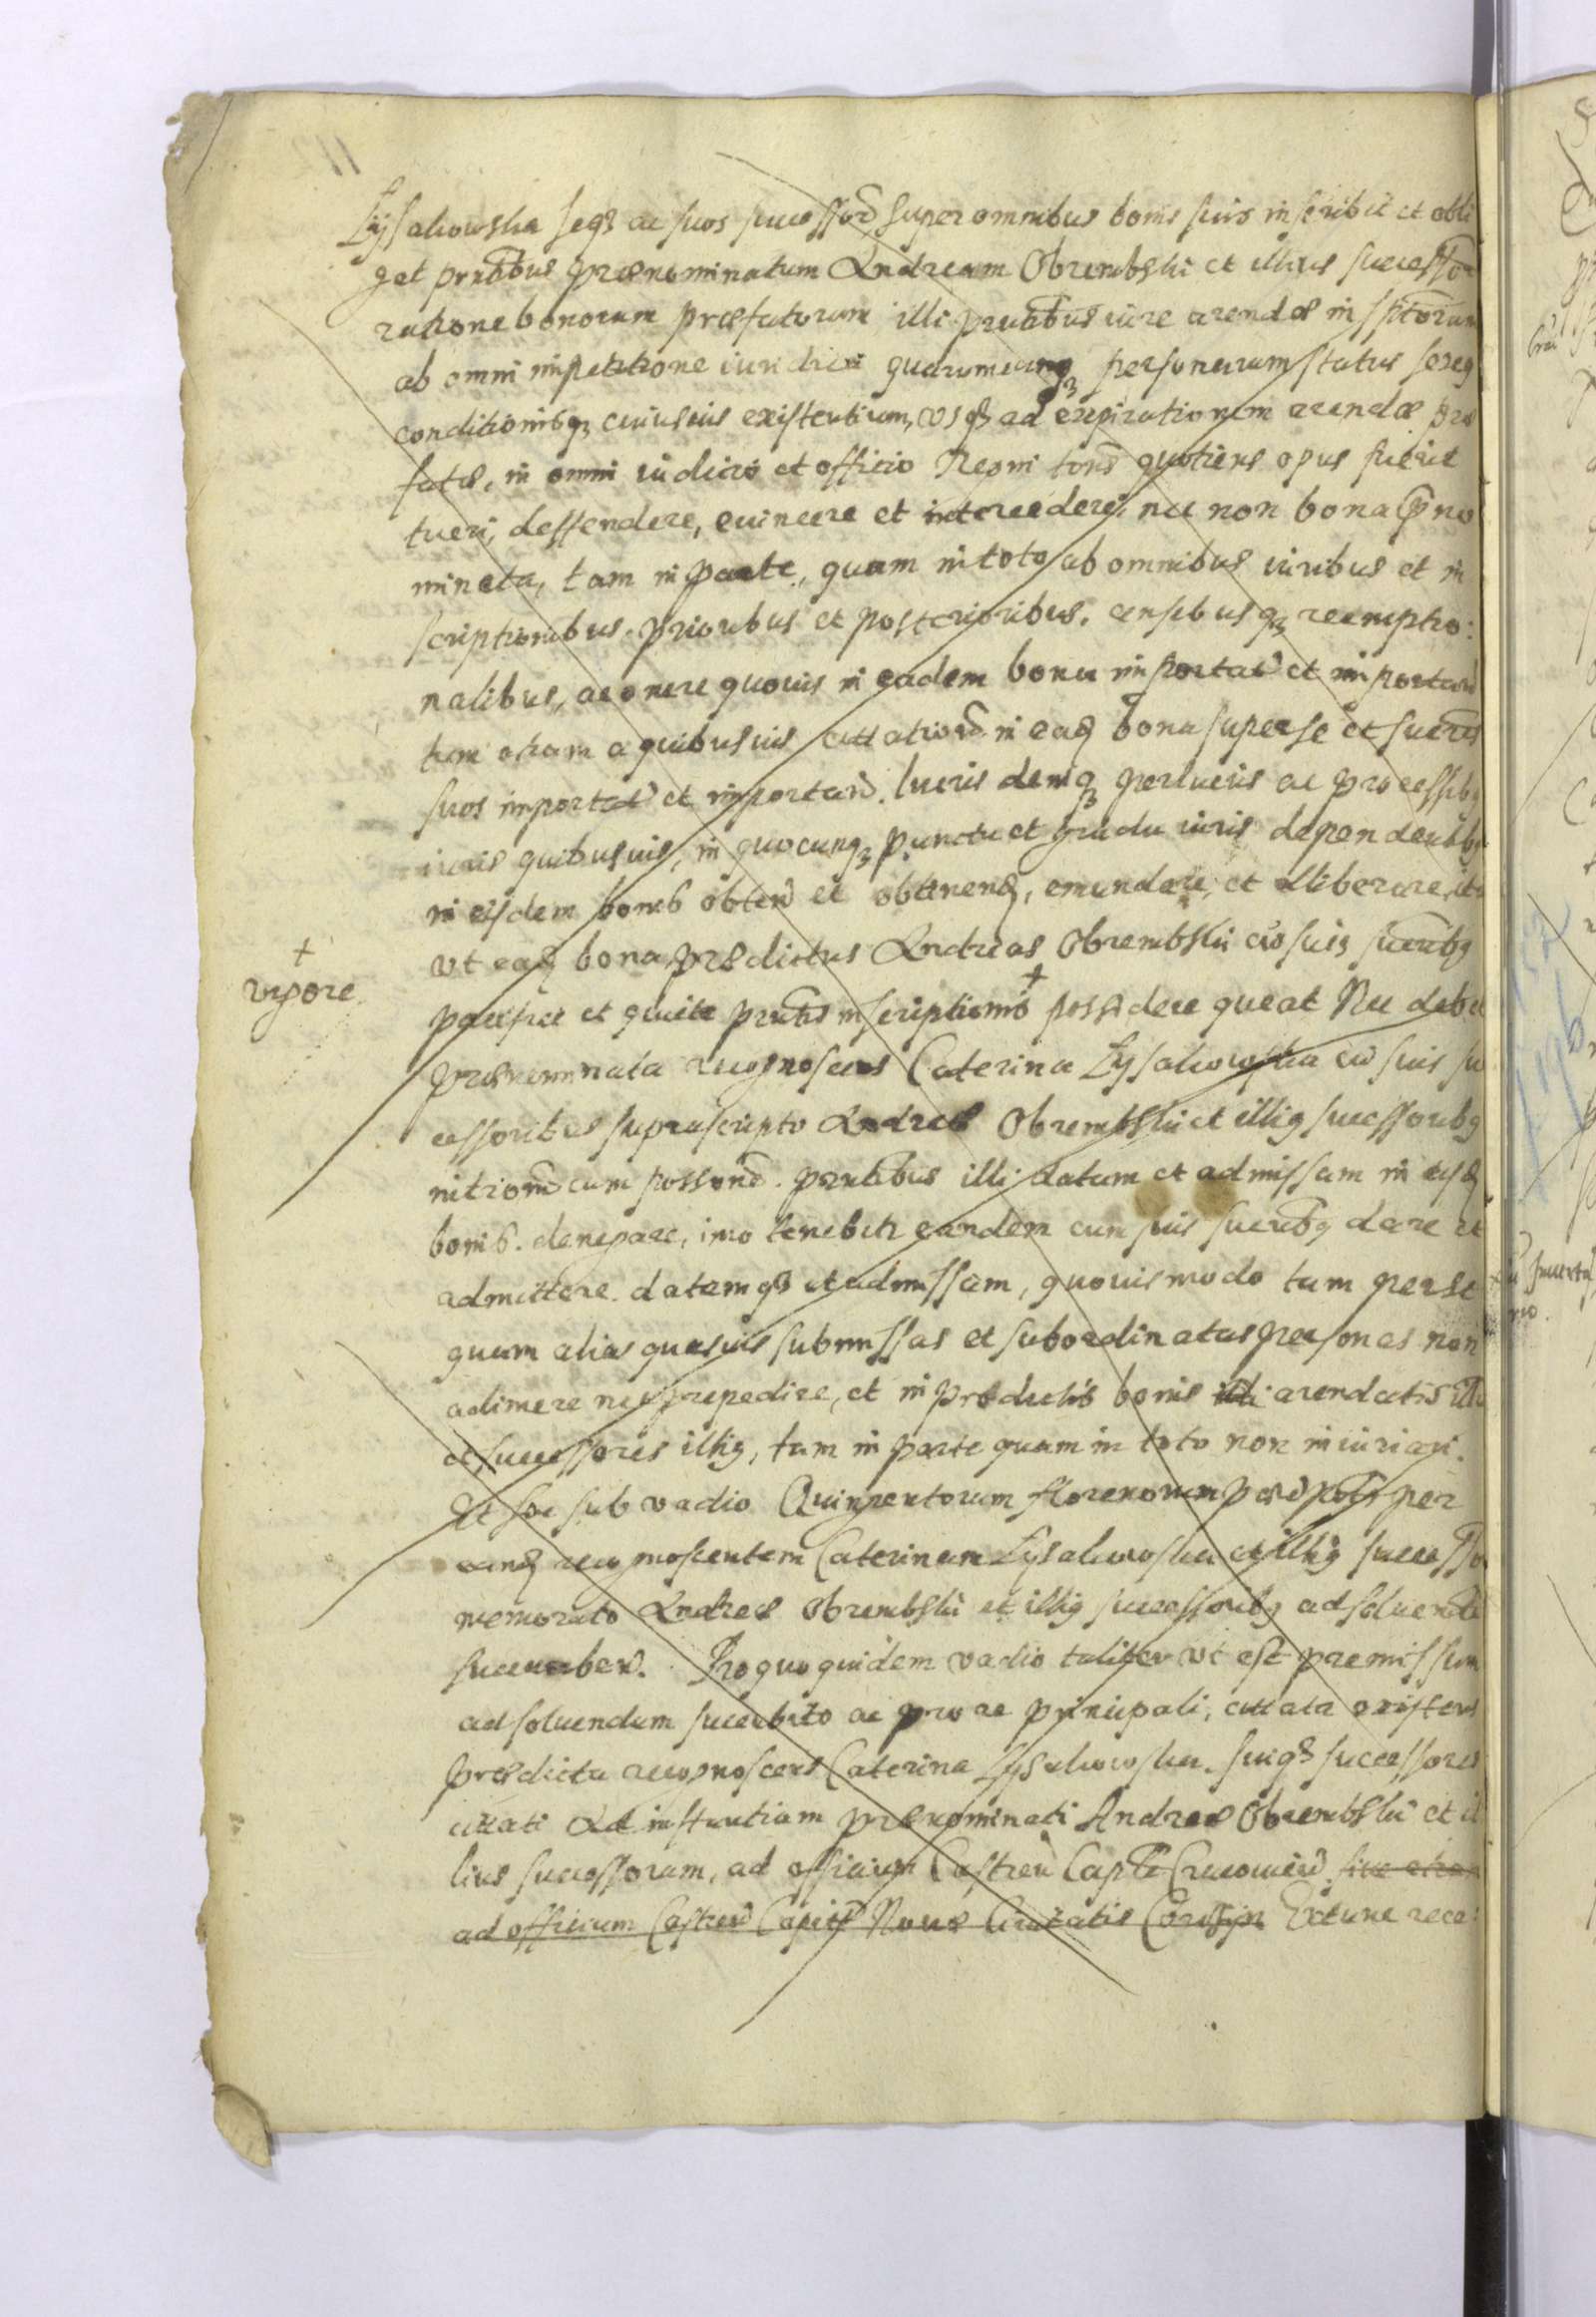 Lysakowska seqз ac suos successor̄ super omnibus bonis suis inscribit et obli
gat pr̄ntibus prænominatum Andream Obrembski et illius successor̄
ratione bonorum præfatorum illi pr̄ntibus iure arendæ inscriptorum
ab omni impetitione iuridica quarumcunqз personarum status sexeqз
conditionisqз cuiusuis existentium, vsqз ad expirationem arendæ præ
fatæ, in omni iudicio et officio Regni toties quotiens opus fuerit
tueri, deffendere, euincere et intercedere, nec non bona p̄no
minata, tam in parte, quam in toto ab omnibus iuribus et in
scriptionibus, prioribus et posterioribus, censibusqз reemptio:
nalibus, ac onere quouis in eadem bona importat̄ et importan̄d
tum etiam a quibusuis euiction̄ in eaqз bona super se et succes̄
suos importat̄ et importan̄d. lucris deniqз perlucris ac processibз
iuris quibusuis, in quocunqз punctu et gradu iuris dependentibз
in eisdem bonis obten̄t et obtinen̄d, emundare, et elliberare, ita
vt eaqз bona prædictus Andreas Obrembski cū suis succribз
+
vigore
pacifice et quiete pr̄ntis inscriptionis + possidere queat Nec debet
prænominata recognoscens Caterina Lysakowska cū suis suc
cessoribus suprascripto Andreæ Obrembski et illiз successoribз
intromis̄ cum possion̄e. pr̄ntibus illi datam et admissam in eisdз
bonis. denegare, imo tenebitr eandem cum suis succribз dare et
admittere. datamqз et admissam, quouismodo tum per se
quam alias quasuis submissas et subordinatas personas non
adimere nec prepedire, et in prædictis bonis illi arendatis illu
et successores illiз, tam in parte quam in toto non iniuriari.
Et hoc sub vadio Quingentorum florenorum per
eandз recognoscentem Caterinam Lysakowska et illiз successor
memorato Andreæ Obrembski et illiз successoribз adsoluendi
succumben̄d. Pro quo quidem vadio taliter vt est premissum
adsoluendum succubito ac pro re principali, citata existens
prædicta recognoscens Caterina Lysakowska. suiqз successores
citati Ad instantiam prænominati Andreæ Obrembski et il
lius successorum, ad officium Castren̄ Captle Cracouien̄. siue etiam
ad officium Castren̄ Capit̄ Nouæ Ciuitatis Corczyn Extunc rece: